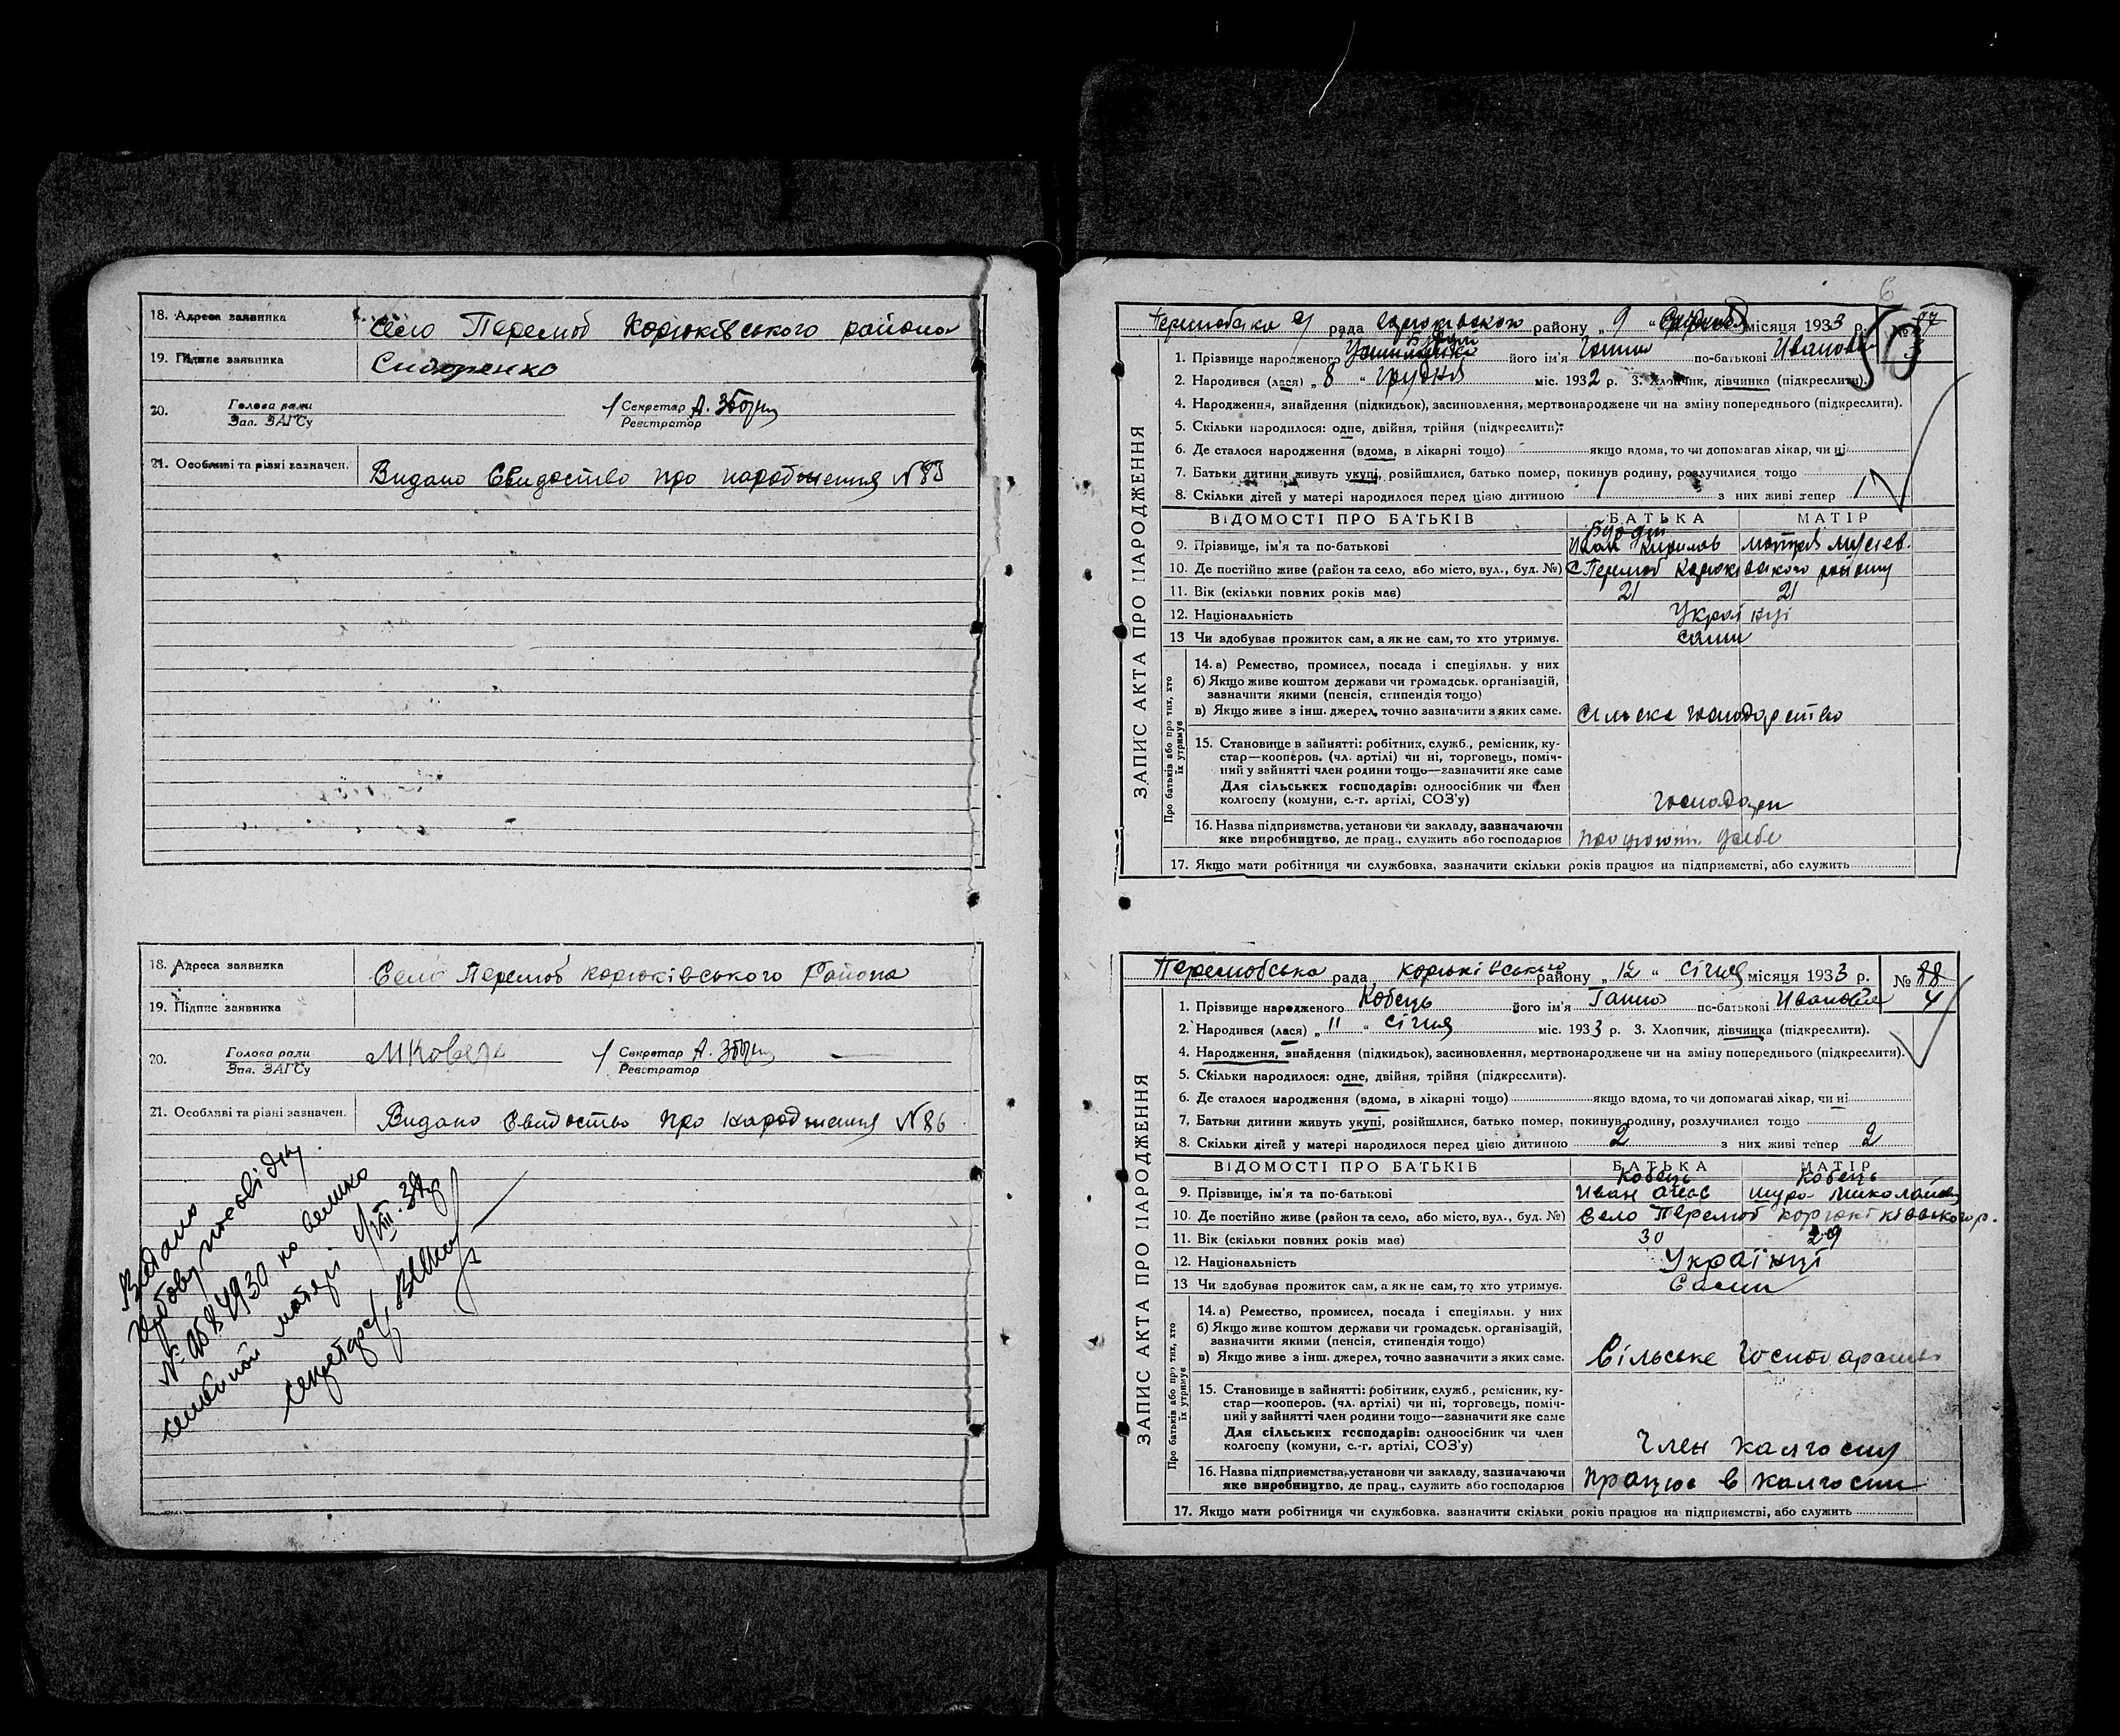 18. Адреса заявника Село Перелюб Корюківського района
19. Підпис заявника Сидоренко
20. Голова ради Секретар А.
Зав. ЗАГСу Реєстратор
21. Особливі та різні зазначен. Видано Свидоство про народження №85
18. Адреса заявника Село Перелюб Корюківського Района
19. Підпис заявника
20. Голова ради МКовець Секретар А.
Зав. ЗАГСу Реєстратор
21. Особливі та різні зазначен. Видано Свидоство про народження №86
Видано
матері
секретар
6
рада району „ 9 “ місяця 1933 р. №
50
1. Прізвище народженого його ім'я Ганна по-батькові Ивановна
2. Народився (лася) „ 8 “ грудня міс. 1932 р. 3. Хлопчик, дівчинка (підкреслити).
4. Народження, знайдення (підкидьок), засиновлення, мертвонароджене чи на зміну попереднього (підкреслити).
5. Скільки народилося: одне, двійня, трійня (підкреслити).
6. Де сталося народження (вдома, в лікарні тощо) якщо вдома, то чи допомагав лікар, чи ні
7. Батьки дитини живуть укупі, розійшлися, батько помер, покинув родину, розлучилися тощо
8. Скільки дітей у матері народилося перед цією дитиною 1 з них живі тепер 1
ЗАПИС АКТА ПРО НАРОДЖЕННЯ
ВІДОМОСТІ ПРО БАТЬКІВ БАТЬКА МАТІР
9. Прізвище, ім'я та по-батькові Иван
10. Де постійно живе (район та село, або місто, вул., буд. №) С Перелюб Корюківського району
11. Вік (скільки повних років має) 21 21
12. Національність Українці
13 Чи здобував прожиток сам, а як не сам, то хто утримує. сами
Про батьків або про тих, хто їх утримує
14. а) Ремество, промисел, посада і спеціяльн. у них
б) Якщо живе коштом держави чи громадськ. організацій,
зазначити якими (пенсія, стипендія тощо)
в) Якщо живе з інш. джерел, точно зазначити з яких саме. Сільске господарство
15. Становище в зайнятті: робітник, служб., ремісник, ку-
стар—кооперов. (чл. артілі) чи ні, торговець, поміч-
ний у зайнятті член родини тощо—зазначити яке саме
Для сільських господарів: одноосібник чи член
колгоспу (комуни, с.-г. артілі, СОЗ'у) господари
16. Назва підприємства, установи чи закладу, зазначаючи
яке виробництво, де прац., служить або господарює
17. Якщо мати робітниця чи службовка, зазначити скільки років працює на підприємстві, або служить
Перелюбська рада Корюківського району „ 12 “ січня місяця 1933 р. № 88
4
1. Прізвище народженого Ковець його ім'я Ганна по-батькові Ивановна
2. Народився (лася) „ 11 “ січня міс. 1933 р. 3. Хлопчик, дівчинка (підкреслити).
4. Народження, знайдення (підкидьок), засиновлення, мертвонароджене чи на зміну попереднього (підкреслити).
5. Скільки народилося: одне, двійня, трійня (підкреслити).
6. Де сталося народження (вдома, в лікарні тощо) якщо вдома, то чи допомагав лікар, чи ні
7. Батьки дитини живуть укупі, розійшлися, батько помер, покинув родину, розлучилися тощо
8. Скільки дітей у матері народилося перед цією дитиною 2 з них живі тепер 2
ЗАПИС АКТА ПРО НАРОДЖЕННЯ
ВІДОМОСТІ ПРО БАТЬКІВ БАТЬКА МАТІР
Ковець Ковець
9. Прізвище, ім'я та по-батькові Иван
10. Де постійно живе (район та село, або місто, вул., буд. №) Село Перелюб
11. Вік (скільки повних років має) 30 29
12. Національність Українці
13 Чи здобував прожиток сам, а як не сам, то хто утримує. Сами
Про батьків або про тих, хто їх утримує
14. а) Ремество, промисел, посада і спеціяльн. у них
б) Якщо живе коштом держави чи громадськ. організацій,
зазначити якими (пенсія, стипендія тощо)
в) Якщо живе з інш. джерел, точно зазначити з яких саме. Сільське
15. Становище в зайнятті: робітник, служб., ремісник, ку-
стар—кооперов. (чл. артілі) чи ні, торговець, поміч-
ний у зайнятті член родини тощо—зазначити яке саме
Для сільських господарів: одноосібник чи член
колгоспу (комуни, с.-г. артілі, СОЗ'у) Член калгоспу
16. Назва підприємства, установи чи закладу, зазначаючи
яке виробництво, де прац., служить або господарює працює в калгоспи
17. Якщо мати робітниця чи службовка, зазначити скільки років працює на підприємстві, або служить